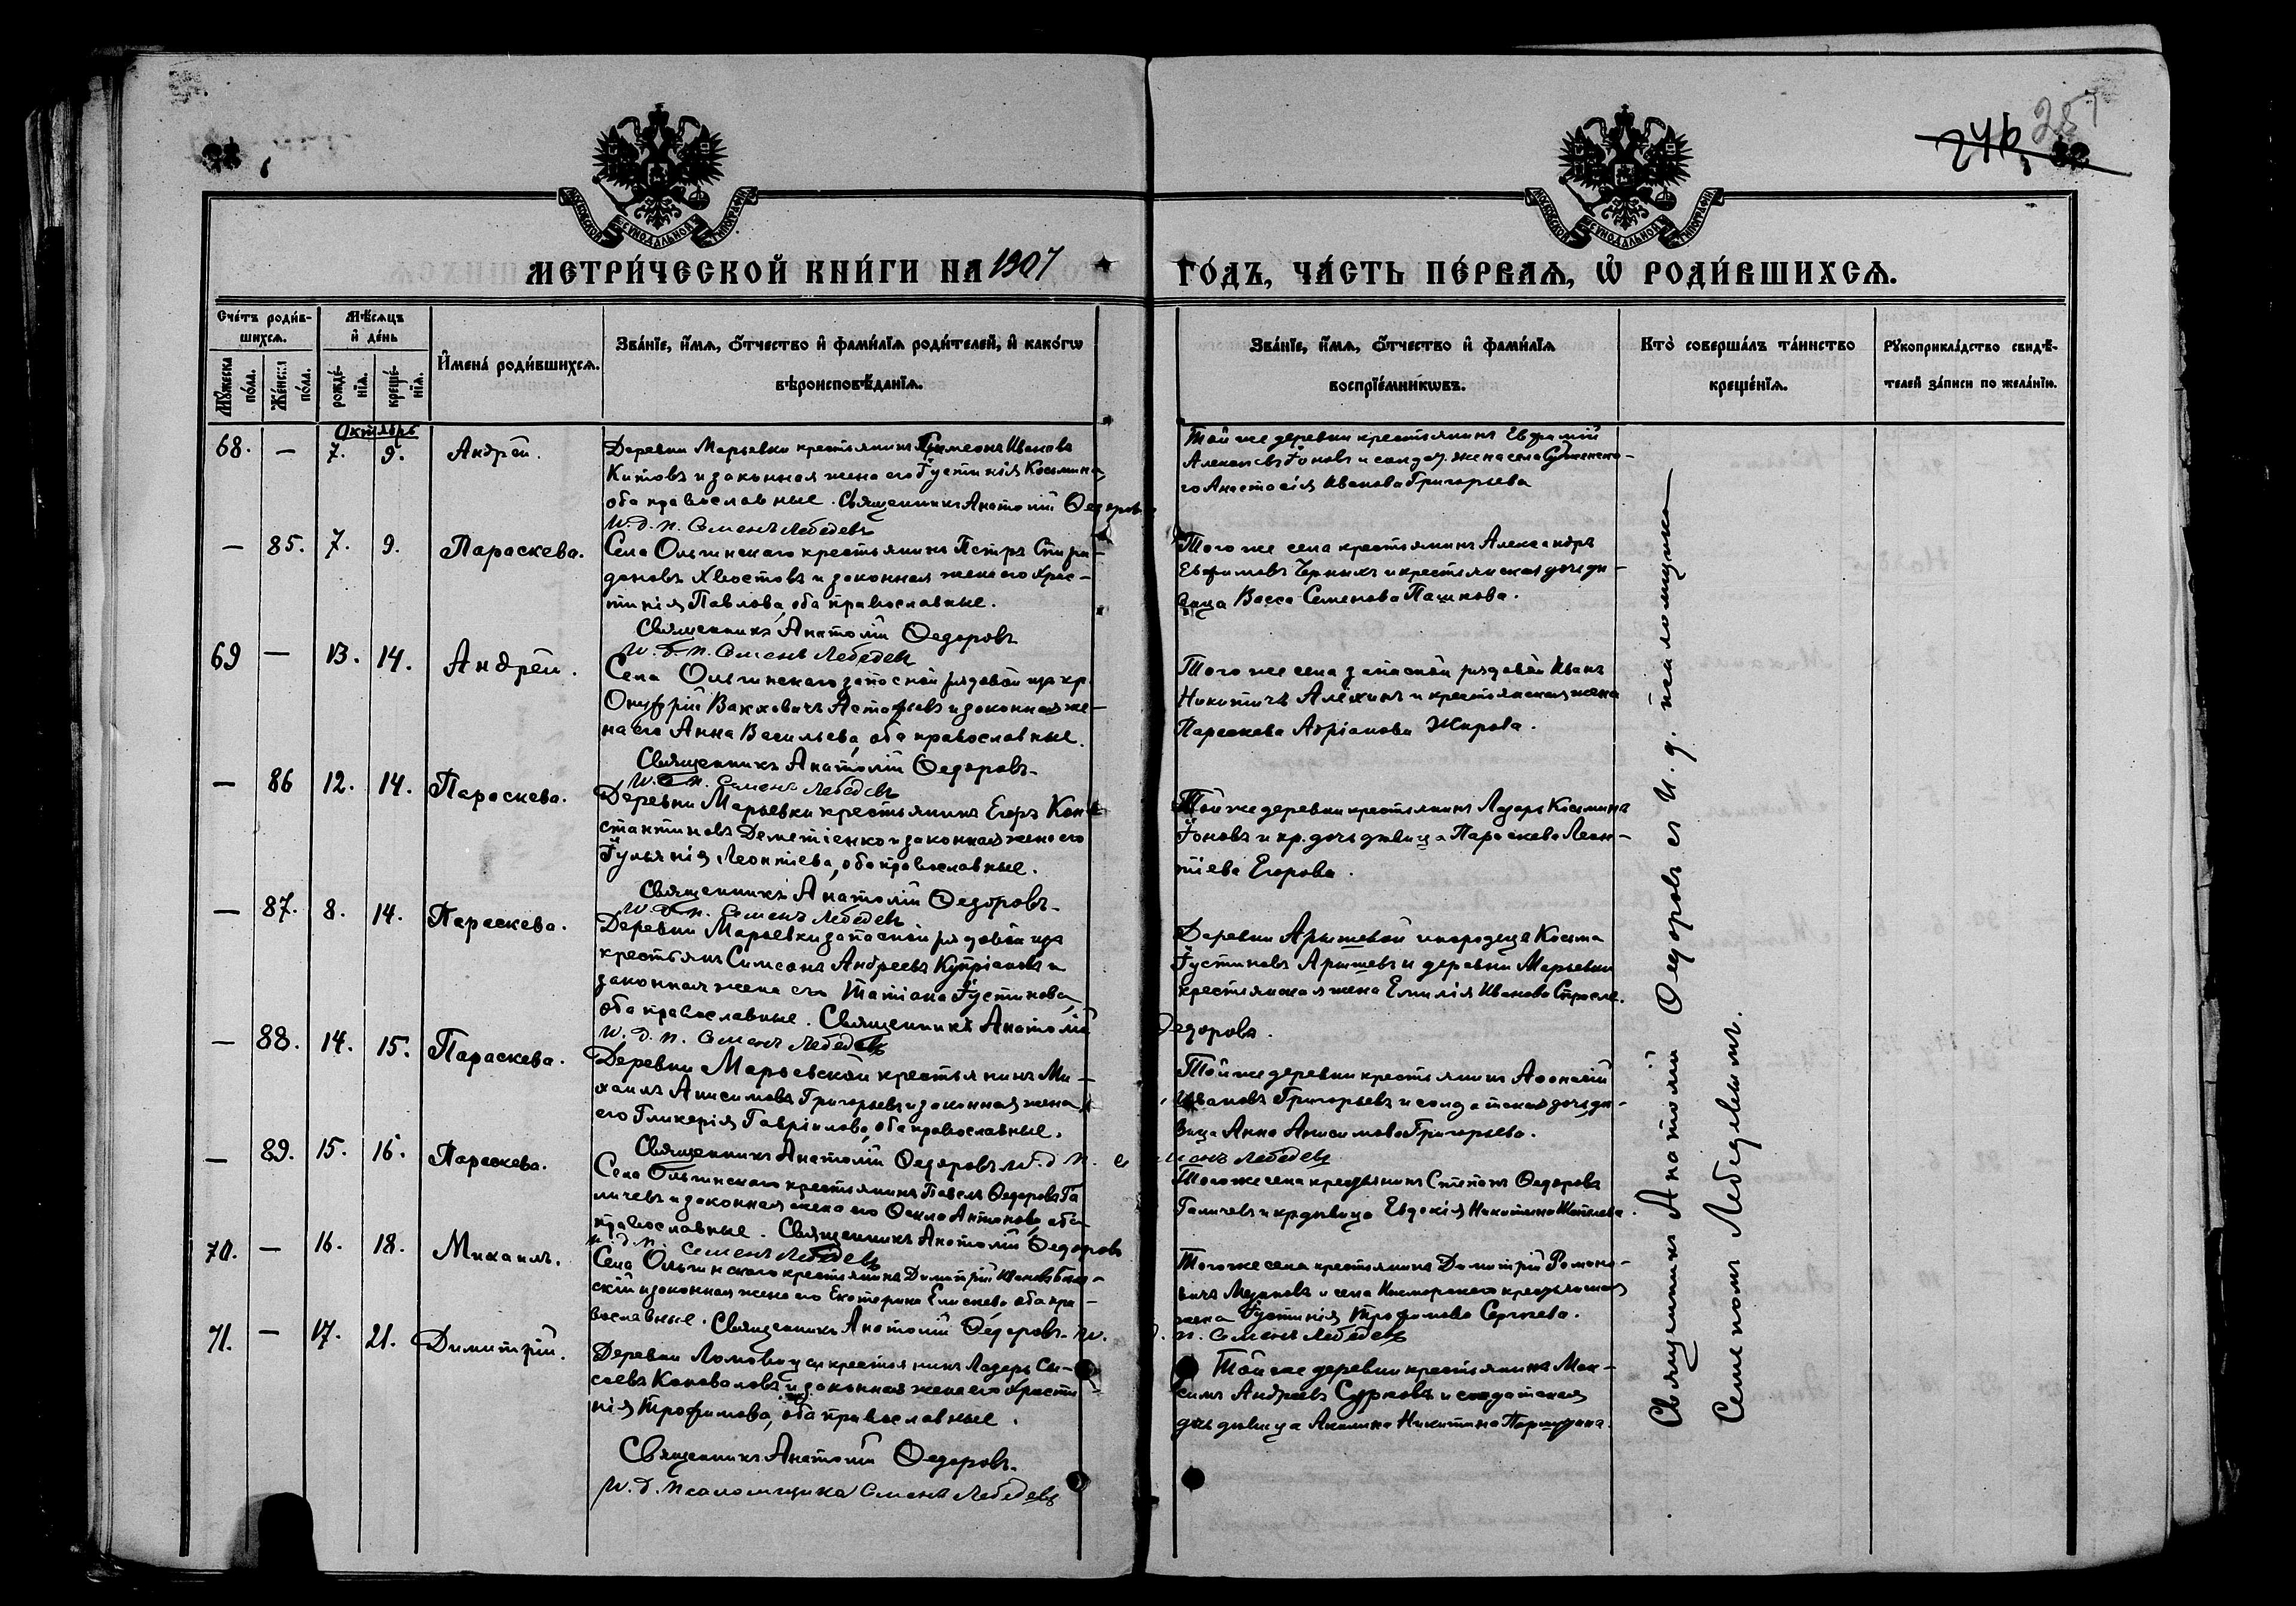 246
257
МОСКОВСКОЙ СѴНОДАЛЬНОЙ ТИПОГРАФІИ
МОСКОВСКОЙ СѴНОДАЛЬНОЙ ТИПОГРАФІИ
МЕТРИ́ЧЕСКОЙ КНИ́ГИ НА 1907 ГО́ДЪ, ЧА́СТЬ ПЕ́РВАѦ, Ѡ҆ РОДИ́ВШИХСѦ.
Сче́тъ роди́в-
шихсѧ.
Мѣ́сѧцъ
и҆ де́нь
Мꙋ́жеска
по́ла.
Же́нска
по́ла.
рожде́-
нїѧ.
креще́-
нїѧ.
И҆мена̀ роди́вшихсѧ.
Зва́нїе, и҆́мѧ, ѻ҆́тчество и҆ фами́лїѧ роди́телей, и҆ како́гѡ
вѣроисповѣ́данїѧ.
Зва́нїе, и҆́мѧ, ѻ҆́тчество и҆ фами́лїѧ
воспрїе́мникѡвъ.
Кто̀ соверша́лъ та́инство
креще́нїѧ.
Рꙋкоприкла́дство свидѣ́-
телей за́писи по жела́нїю.
Октябрь
68. — 7. 9. Андрей.
Деревни Марьевки крестьянинъ Симеонъ Ивановъ
Китовъ и законная жена его Іустинія Косьмина,
оба православные. Священникъ Анатолій Ѳедоровъ
И. д. п. Семенъ Лебедевъ
Той же деревни крестьянинъ Евфимій
Алексѣевъ Іоновъ и солдат. жена села
го Анастасія Иванова Григорьева
— 85. 7. 9. Параскева.
Села Ольгинскаго крестьянинъ Петръ Спири-
доновъ Хвостовъ и законная жена его Хрис-
тинія Павлова, оба православные.
Священникъ Анатолій Ѳедоровъ
И. д. п. Семенъ Лебедевъ
Того же села крестьянинъ Александръ
Евфимовъ Черныхъ и крестьянская дочь дѣ-
вица Васса Семенова Пашкова.
69 — 13. 14. Андрей.
Села Ольгинскаго запасной рядовой изъ кр.
Онуфрій Вакховичъ Астафьевъ и законная же-
на его Анна Васильева, оба православные.
Священникъ Анатолій Ѳедоровъ.
И. д. п. Семенъ Лебедевъ
Того же села запасной рядовой Иванъ
Никитичъ Алёхинъ и крестьянская жена
Параскева Адріанова Жирова.
— 86 12. 14. Параскева.
Деревни Марьевки крестьянинъ Егоръ Кон-
стантиновъ Деметіенко и законная жена его
Іульянія Леонтіева, оба православные.
Священникъ Анатолій Ѳедоровъ.
И. д. п. Семенъ Лебедевъ
Той же деревни крестьянинъ Лазарь Косьминъ
Іоновъ и кр. дочь дѣвица Параскева Леон-
тіева Егорова.
— 87. 8. 14. Параскева.
Деревни Марьевки запасной рядовой изъ
крестьянъ Симеонъ Андреевъ Купріановъ и
законная жена его Татіана Іустинова,
оба православные. Священникъ Анатолій Ѳедоровъ.
И. д. п. Семенъ Лебедевъ
Деревни Арышевой инородецъ Косьма
Іустиновъ Арышевъ и деревни Марьевки
крестьянская жена Емилія Иванова
— 88. 14. 15. Параскева.
Деревни Марьевской крестьянинъ Ми-
хаилъ Анисимовъ Григорьевъ и законная жена
его Гликерія Гавріилова, оба православные.
Священникъ Анатолій Ѳедоровъ И. д. п. Семенъ Лебедевъ
Той же деревни крестьянинъ Аѳанасій
Ивановъ Григорьевъ и солдатская дочь дѣ-
вица Анна Анисимова Григорьева.
— 89. 15. 16. Параскева.
Села Ольгинскаго крестьянинъ Павелъ Ѳедоровъ Га
личевъ и законная жена его Ѳекла Антонова, оба
православные. Священникъ Анатолій Ѳедоровъ
И. д. п. Семенъ Лебедевъ
Того же села крестьянинъ Степанъ Ѳедоровъ
Галичевъ и кр. дѣвица Евдокія Никитина
70. — 16. 18. Михаилъ.
Села Ольгинскаго крестьянинъ Димитрій Ивановъ
скій и законная жена его Екатерина Елисеева оба пра-
вославные. Священникъ Анатолій Ѳедоровъ. И. д. п. Семенъ Лебедевъ
Того же села крестьянинъ Димитрій Романо-
вичъ и села крестьянская
жена Іустинія Трофимова Сергѣева.
71. — 17. 21. Димитрій.
Деревни Ломовицы крестьянинъ Лазарь Сы-
соевъ Коноваловъ и законная жена его Христи
нія Трофимова, оба православные.
Священникъ Анатолій Ѳедоровъ.
И. д. псаломщика Семенъ Лебедевъ
Той же деревни крестьянинъ Мак-
симъ Андреевъ Сурковъ и солдатская
дочь дѣвица Акилина Никитина Паршукова.
Священникъ Анатолій Ѳедоровъ съ И. д. псаломщика
Семеномъ Лебедевымъ.